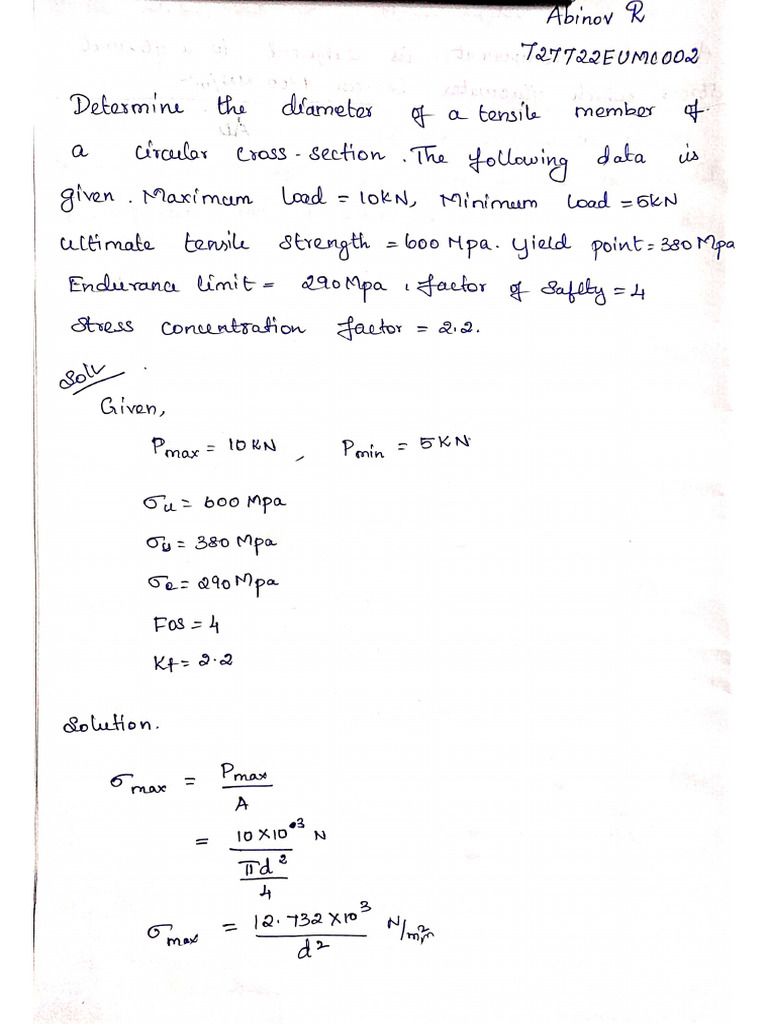 Abinov R
727722EUMC002
Determine the diameter of a tensile member of
a circular cross-section. The following data is
given. Maximum load = 10KN, Minimum load = 5KN
ultimate tensile strength = 600 Mpa. Yield point = 380 Mpa
Endurance limit = 290 Mpa, factor of safety = 4
Stress concentration factor = 2.2.
Solu
Given,
Pmax = 10 KN, Pmin = 5 KN
σu = 600 Mpa
σy = 380 Mpa
σe = 290 Mpa
FOS = 4
Kf = 2.2
Solution.
σmax = Pmax / A
= 10 × 10³ N / (πd² / 4)
σmax = 12.732 × 10³ / d² N/mm²